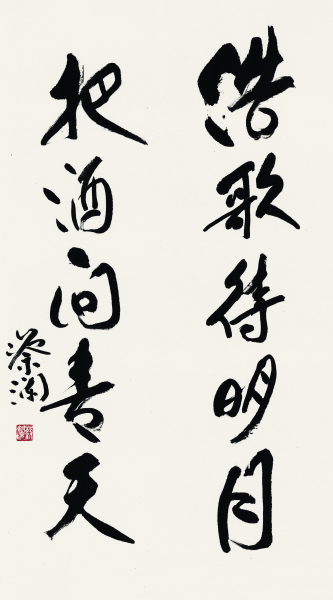 浩歌待明月
把酒问青天
蔡澜